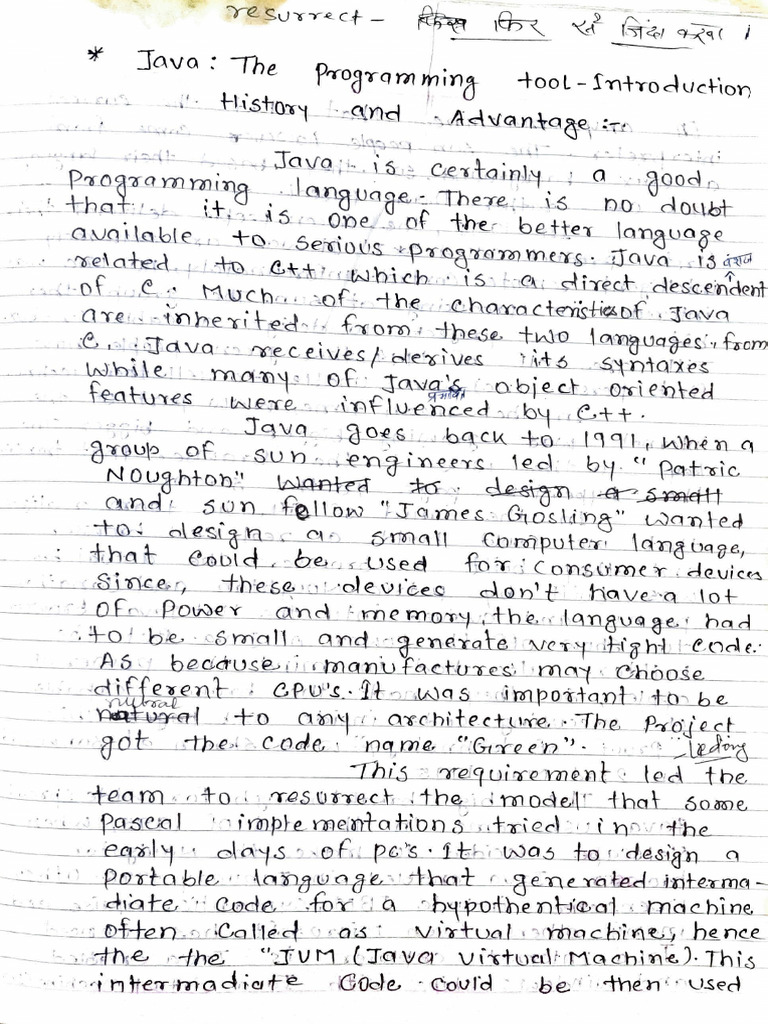 resurrect - फिर से जिंदा करना ।
* Java : The Programming tool-Introduction
History and Advantage :-
Java is certainly a good
Programming language. There is no doubt
that it is one of the better language
available to serious programmers. Java is वंशज
related to C++ which is a direct descendent
of C. Much of the characteristics of Java
are inherited from these two languages, from
C. Java receives/derives its syntaxes
While many of Java's object oriented
features were influenced by C++.
Java goes back to 1991, when a
group of sun engineers led by "Patric
Noughton" wanted to design a small
and sun fellow "James Gosling" wanted
to design a small computer language,
that could be used for consumer devices
since, these devices don't have a lot
of Power and memory, the language had
to be small and generate very tight code.
As because manufactures may choose
different CPU's. It was important to be
nutral
natural to any architecture. The Project
got the code name "Green". leding
This requirement led the
team to resurrect the model that some
Pascal implementations tried in the
early days of PC's. It was to design a
Portable language that generated interma-
diate code for a hypothentical machine
often called as virtual machine, hence
the the "JVM (Java Virtual Machine). This
intermadiate code could be then used